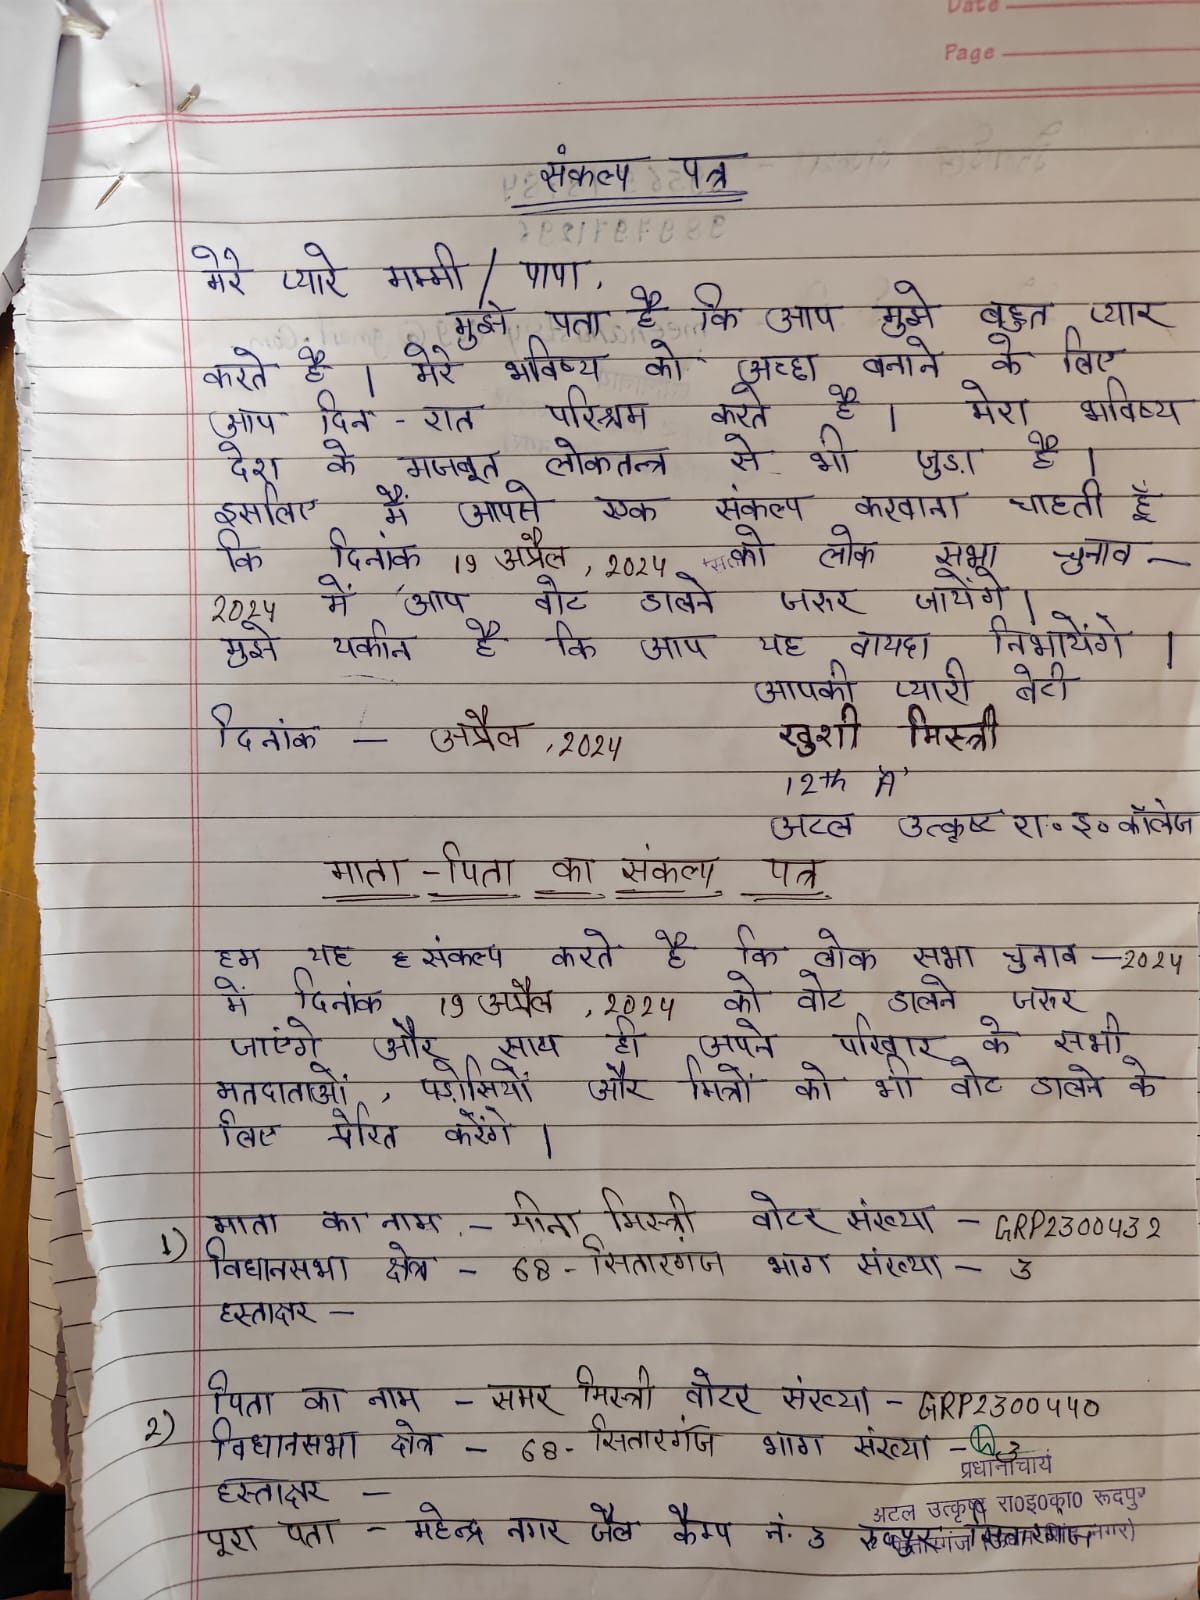 Date
Page
संकल्प पत्र
मेरे प्यारे मम्मी / पापा,
मुझे पता है कि आप मुझे बहुत प्यार
करते है । मेरे भविष्य को अच्छा बनाने के लिए
आप दिन - रात परिश्रम करते है । मेरा भविष्य
देश के मजबूत लोकतन्त्र से भी जुड़ा है ।
इसलिए मैं आपसे एक संकल्प करवाना चाहती हूँ
कि दिनांक 19 अप्रैल, 2024 को लोक सभा चुनाव –
2024 में आप वोट डालने जरुर जायेंगे ।
मुझे यकीन है कि आप यह वायदा निभायेंगे ।
आपकी प्यारी बेटी
दिनांक – अप्रैल, 2024 खुशी मिस्त्री
12th 'A'
अटल उत्कृष्ट रा० इ० कॉलेज
माता - पिता का संकल्प पत्र
हम यह संकल्प करते है कि लोक सभा चुनाव – 2024
में दिनांक 19 अप्रैल, 2024 को वोट डालने जरुर
जाएंगे और साथ ही अपने परिवार के सभी
मतदाताओं, पड़ोसियों और मित्रों को भी वोट डालने के
लिए प्रेरित करेंगे ।
1) माता का नाम - मीना मिस्त्री वोटर संख्या - GRP2300432
विधानसभा क्षेत्र - 68 - सितारगंज भाग संख्या - 3
हस्ताक्षर –
2) पिता का नाम - समर मिस्त्री वोटर संख्या - GRP2300440
विधानसभा क्षेत्र - 68 - सितारगंज भाग संख्या - 3
प्रधानाचार्य
हस्ताक्षर –
अटल उत्कृष्ट रा०इ०का० रूदपुर
पूरा पता - महेन्द्र नगर जेल कैम्प नं. 3